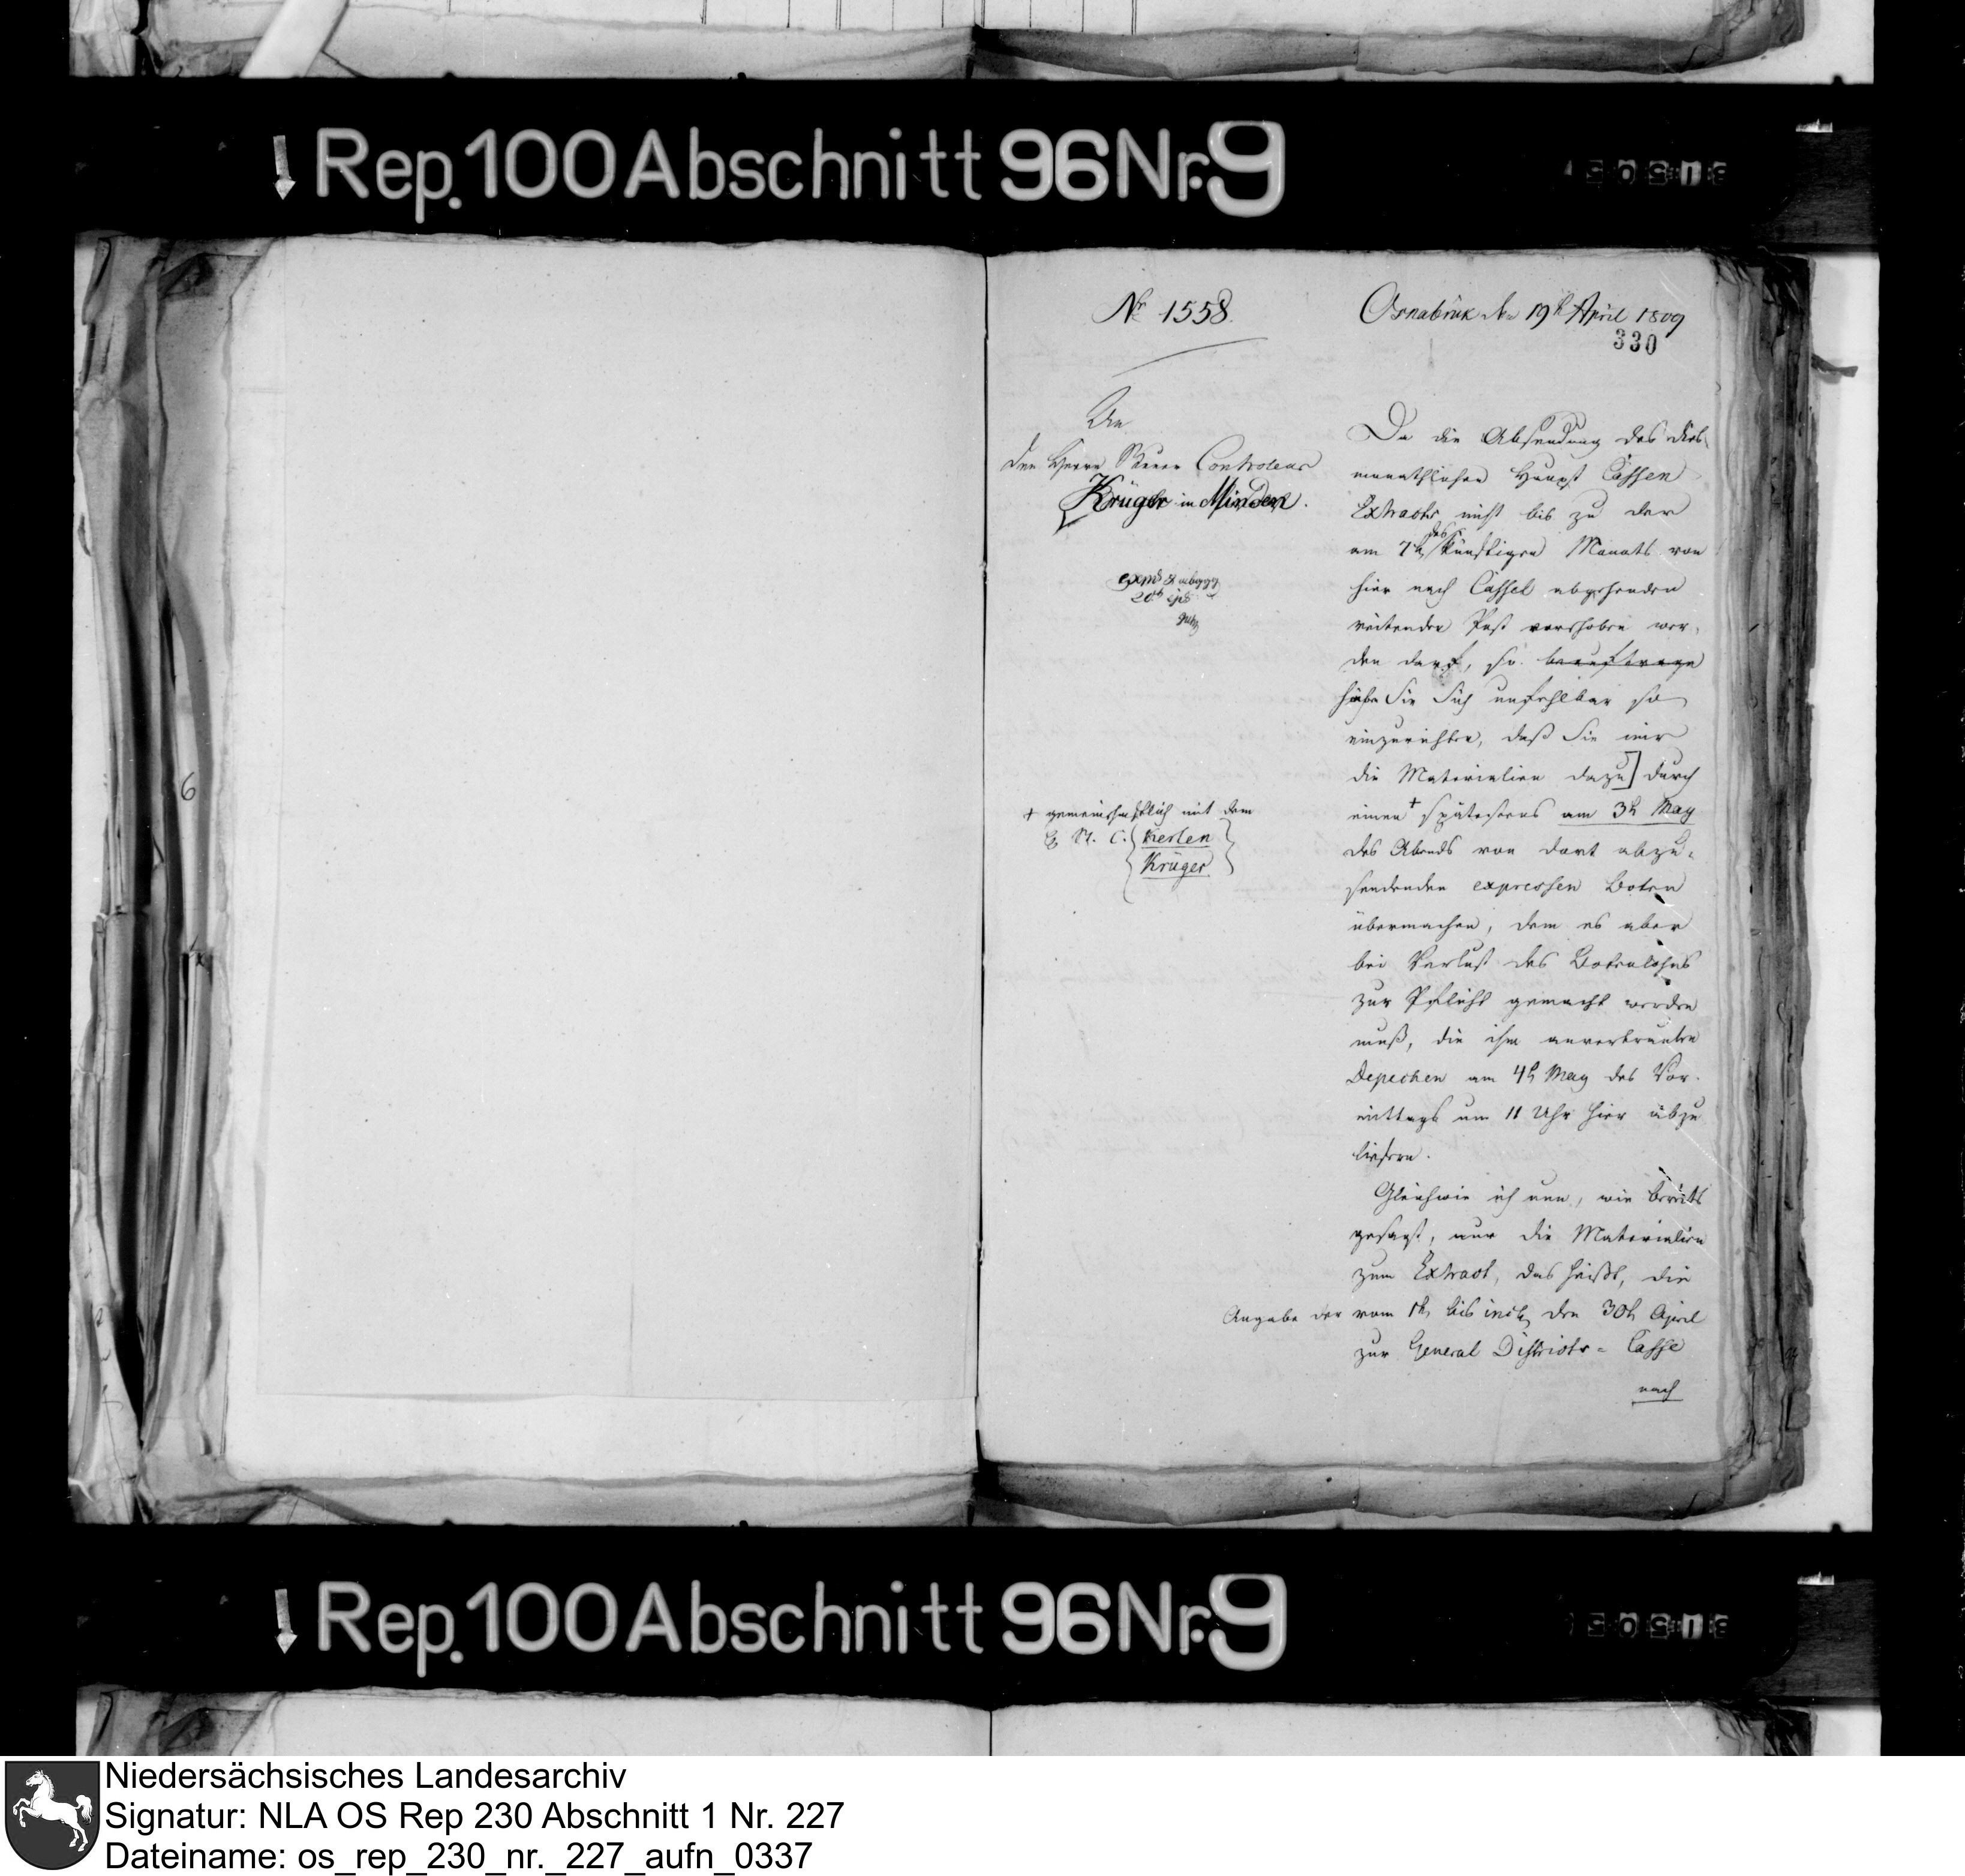 Rep. 100 Abschnitt 96 Nr. 9
No 1558.
Osnabrük den 19t April 1809
330
An
den Herrn Steuer Controleur
Krüger in Minden.
20t ejd
Da die Absendung des dies-
monathlichen Haupt Cassen
Extracts nicht bis zu der
am 7ten des künftigen Monats von
hier nach Cassel abgehenden
reitenden Post verschoben wer-
den darf, so beauftrage
haben Sie Sich unfehlbar so
einzurichten, daß Sie mir
die Materialien dazu] durch
einen + spätestens am 3t May
des Abends von dort abzu-
sendenden expressen Boten
übermachen, dem es aber
bei Verlust des Botenlohns
zur Pflicht gemacht werden
muß, die ihm anvertrauten
Depechen am 4t May des Vor-
mittags um 11 Uhr hier abzu
liefern.
+ gemeinschaftlich mit dem
St. C. Kerlen
Krüger
Gleichwie ich nun, wie bereits
gesagt, nur die Materialien
zum Extract, das heißt, die
Angabe der vom 1ten bis incl. den 30t April
zur General Districts-Casse
nach
Rep. 100 Abschnitt 96 Nr. 9
Niedersächsisches Landesarchiv
Signatur: NLA OS Rep 230 Abschnitt 1 Nr. 227
Dateiname: os_rep_230_nr._227_aufn_0337